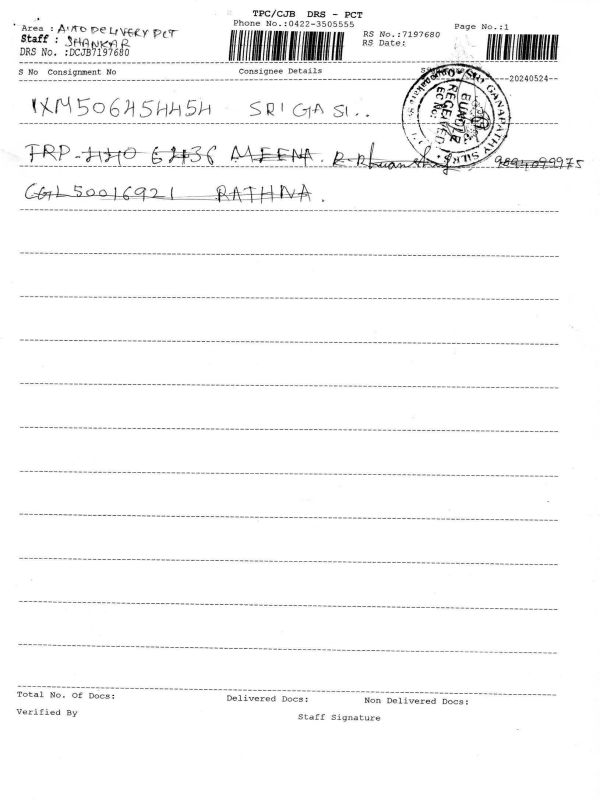 TPC/CJB DRS - PCT
Area : AUTO DELIVERY PCT
Phone No.:0422-3505555
Page No.:1
Staff : SHANKAR
RS No.:7197680
DRS No. :DCJB7197680
RS Date:
S No Consignment No
Consignee Details
20240524
SRI GANAPATHY SILKS
RECEIVED
IXM506454454 SRI GA SI..
62436 MEENA. 9894099975
CGL50016921 RATHNA.
Total No. Of Docs:
Delivered Docs:
Non Delivered Docs:
Verified By
Staff Signature